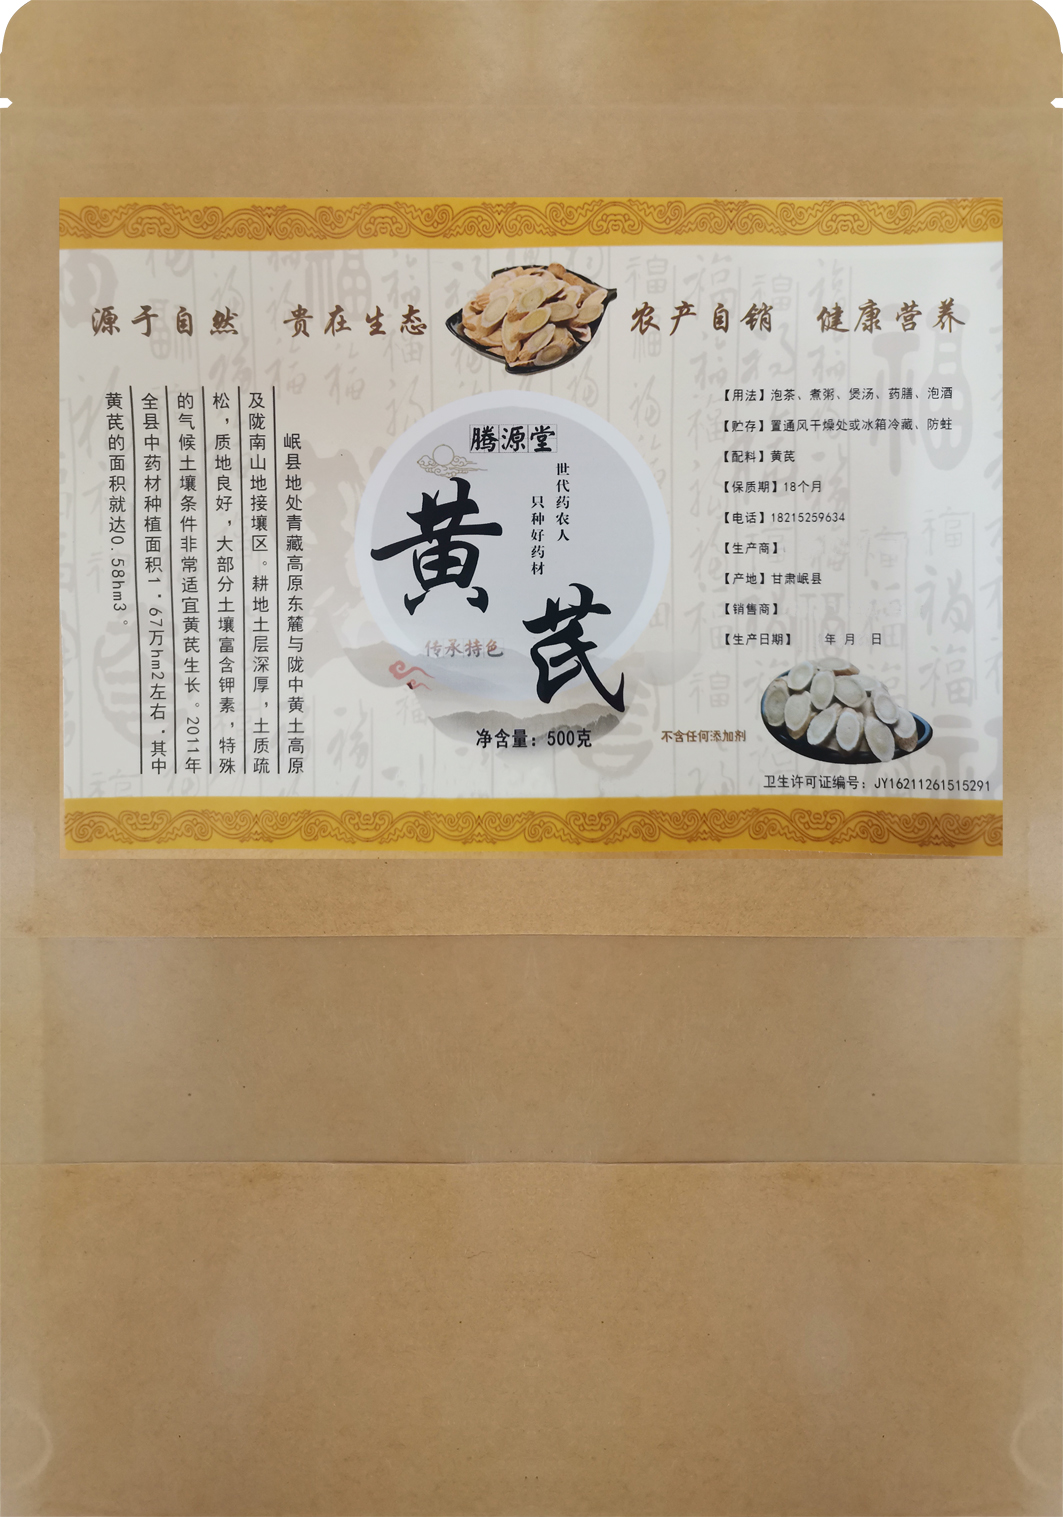 源于自然 贵在生态
农产自销 健康营养
岷县地处青藏高原东麓与陇中黄土高原
及陇南山地接壤区。耕地土层深厚，土质疏
松，质地良好，大部分土壤富含钾素，特殊
的气候土壤条件非常适宜黄芪生长。2011年
全县中药材种植面积1·67万hm2左右.其中
黄芪的面积就达0.58hm3。
腾源堂
世代药农人
只种好药材
黄芪
传承特色
净含量：500克
【用法】泡茶、煮粥、煲汤、药膳、泡酒
【贮存】置通风干燥处或冰箱冷藏、防蛀
【配料】黄芪
【保质期】18个月
【电话】18215259634
【生产商】
【产地】甘肃岷县
【销售商】
【生产日期】 年 月 日
不含任何添加剂
卫生许可证编号：JY16211261515291